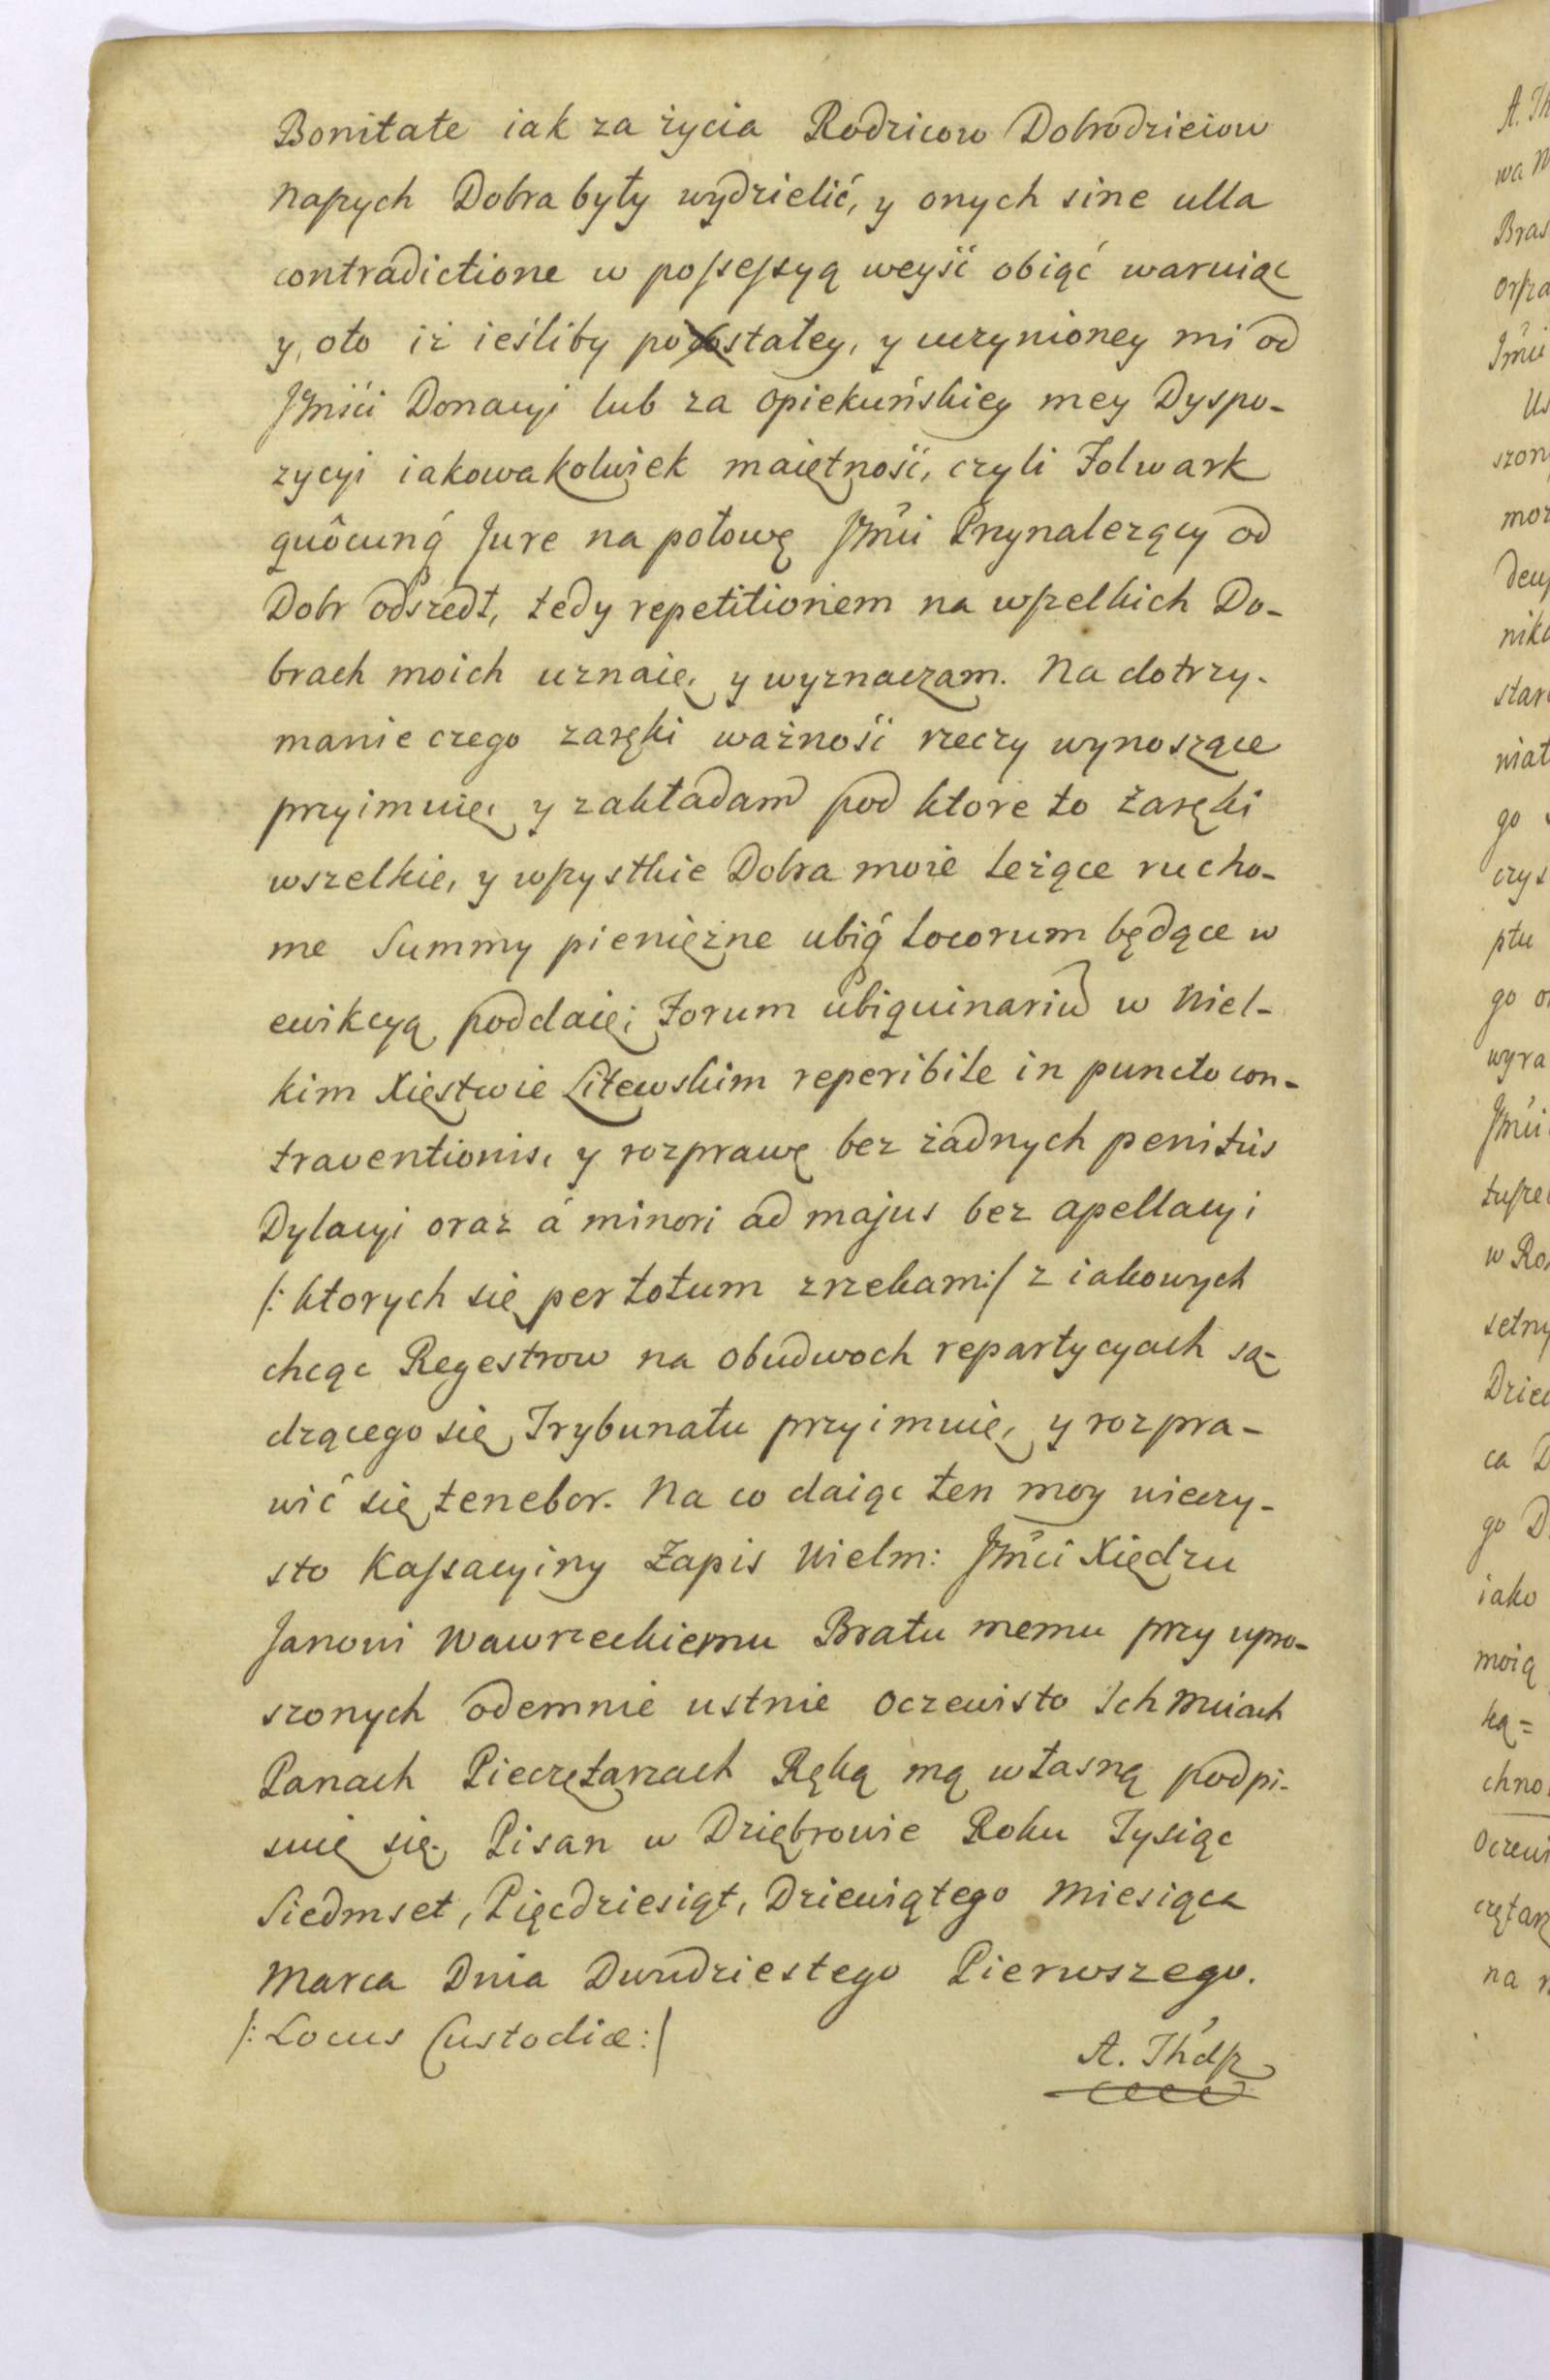 Bonitate iak za życia Rodzicow Dobrodzieiow
naszych Dobra były wydzielić, y onych sine ulla
contradictione w possessyą weyść obiąć waruiąc
y, oto iż ieśliby postałey, y uczynioney mi od
Jmści Donacyi lub za opiekuńskiey mey Dyspo-
zycyi iakowakolwiek maiętność, czyli Folwark
quôcunq́ Jure na połowę Jmći Przynależący od
Dobr odszedł, tedy repetitionem na wszelkich Do-
brach moich uznaię, y wyznaczam. Na dotrzy-
manie czego zaręki ważność rzeczy wynoszące
przyimuię, y zakładam pod ktore to zaręki
wszelkie, y wszystkie Dobra moie leżące rucho-
me Summy pieniężne ubiq́ locorum będące w
ewikcyą poddaię; Forum ubiquinariũ w Wiel-
kim Xięstwie Litewskim reperibile in puncto con-
traventionis, y rozprawę bez żadnych penitùs
Dylacyi oraz á minori ad majus bez apellacyi
/: ktorych się per totum zrzekam:/ z iakowych
chcąc Regestrow na obudwoch repartycyach są-
dzącego się Trybunału przyimuię, y rozpra-
wić się tenebor. Na co daiąc ten moy wieczy-
sto Kassacyiny Zapis Wielm: Jmći Xiędzu
Janowi Wawrzeckiemu Bratu memu przy upro-
szonych odemnie ustnie oczewisto Ichmciach
Panach Pieczętarzach Ręką mą własną podpi-
suię się. Pisan w Dziębrowie Roku Tysiąc
Siedmset, Pięcdziesiąt, Dziewiątego Miesiąca
Marca Dnia Dwudziestego Pierwszego.
/: Locus Custodiæ:/